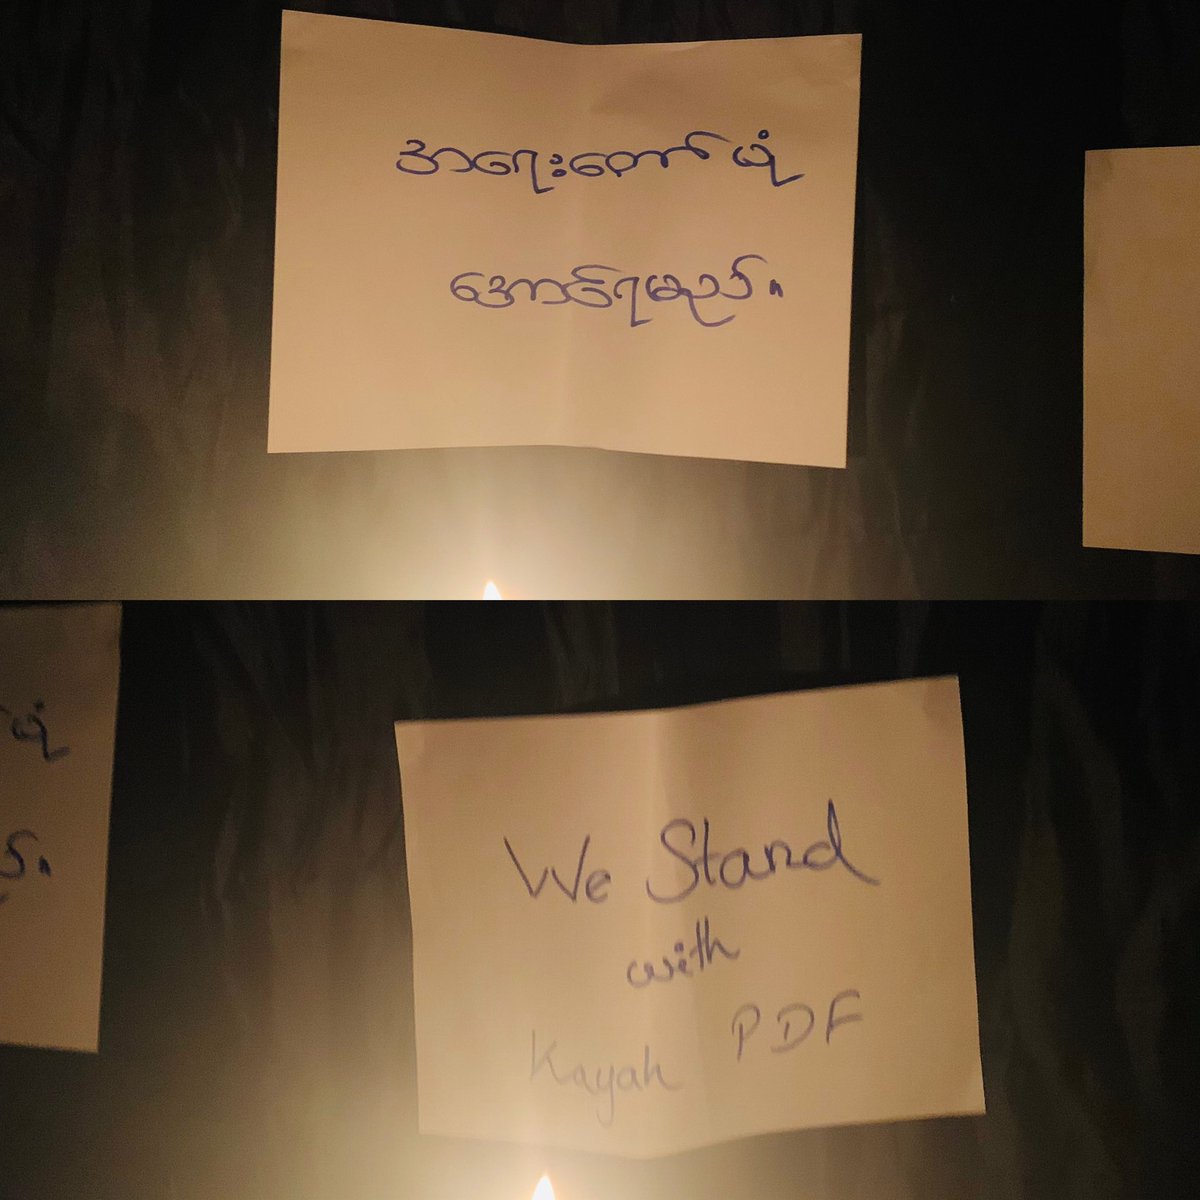 အရေးတော်ပုံ
အောင်ရမည်။
ပုံ
ည်။
We Stand
with
Kayah PDF